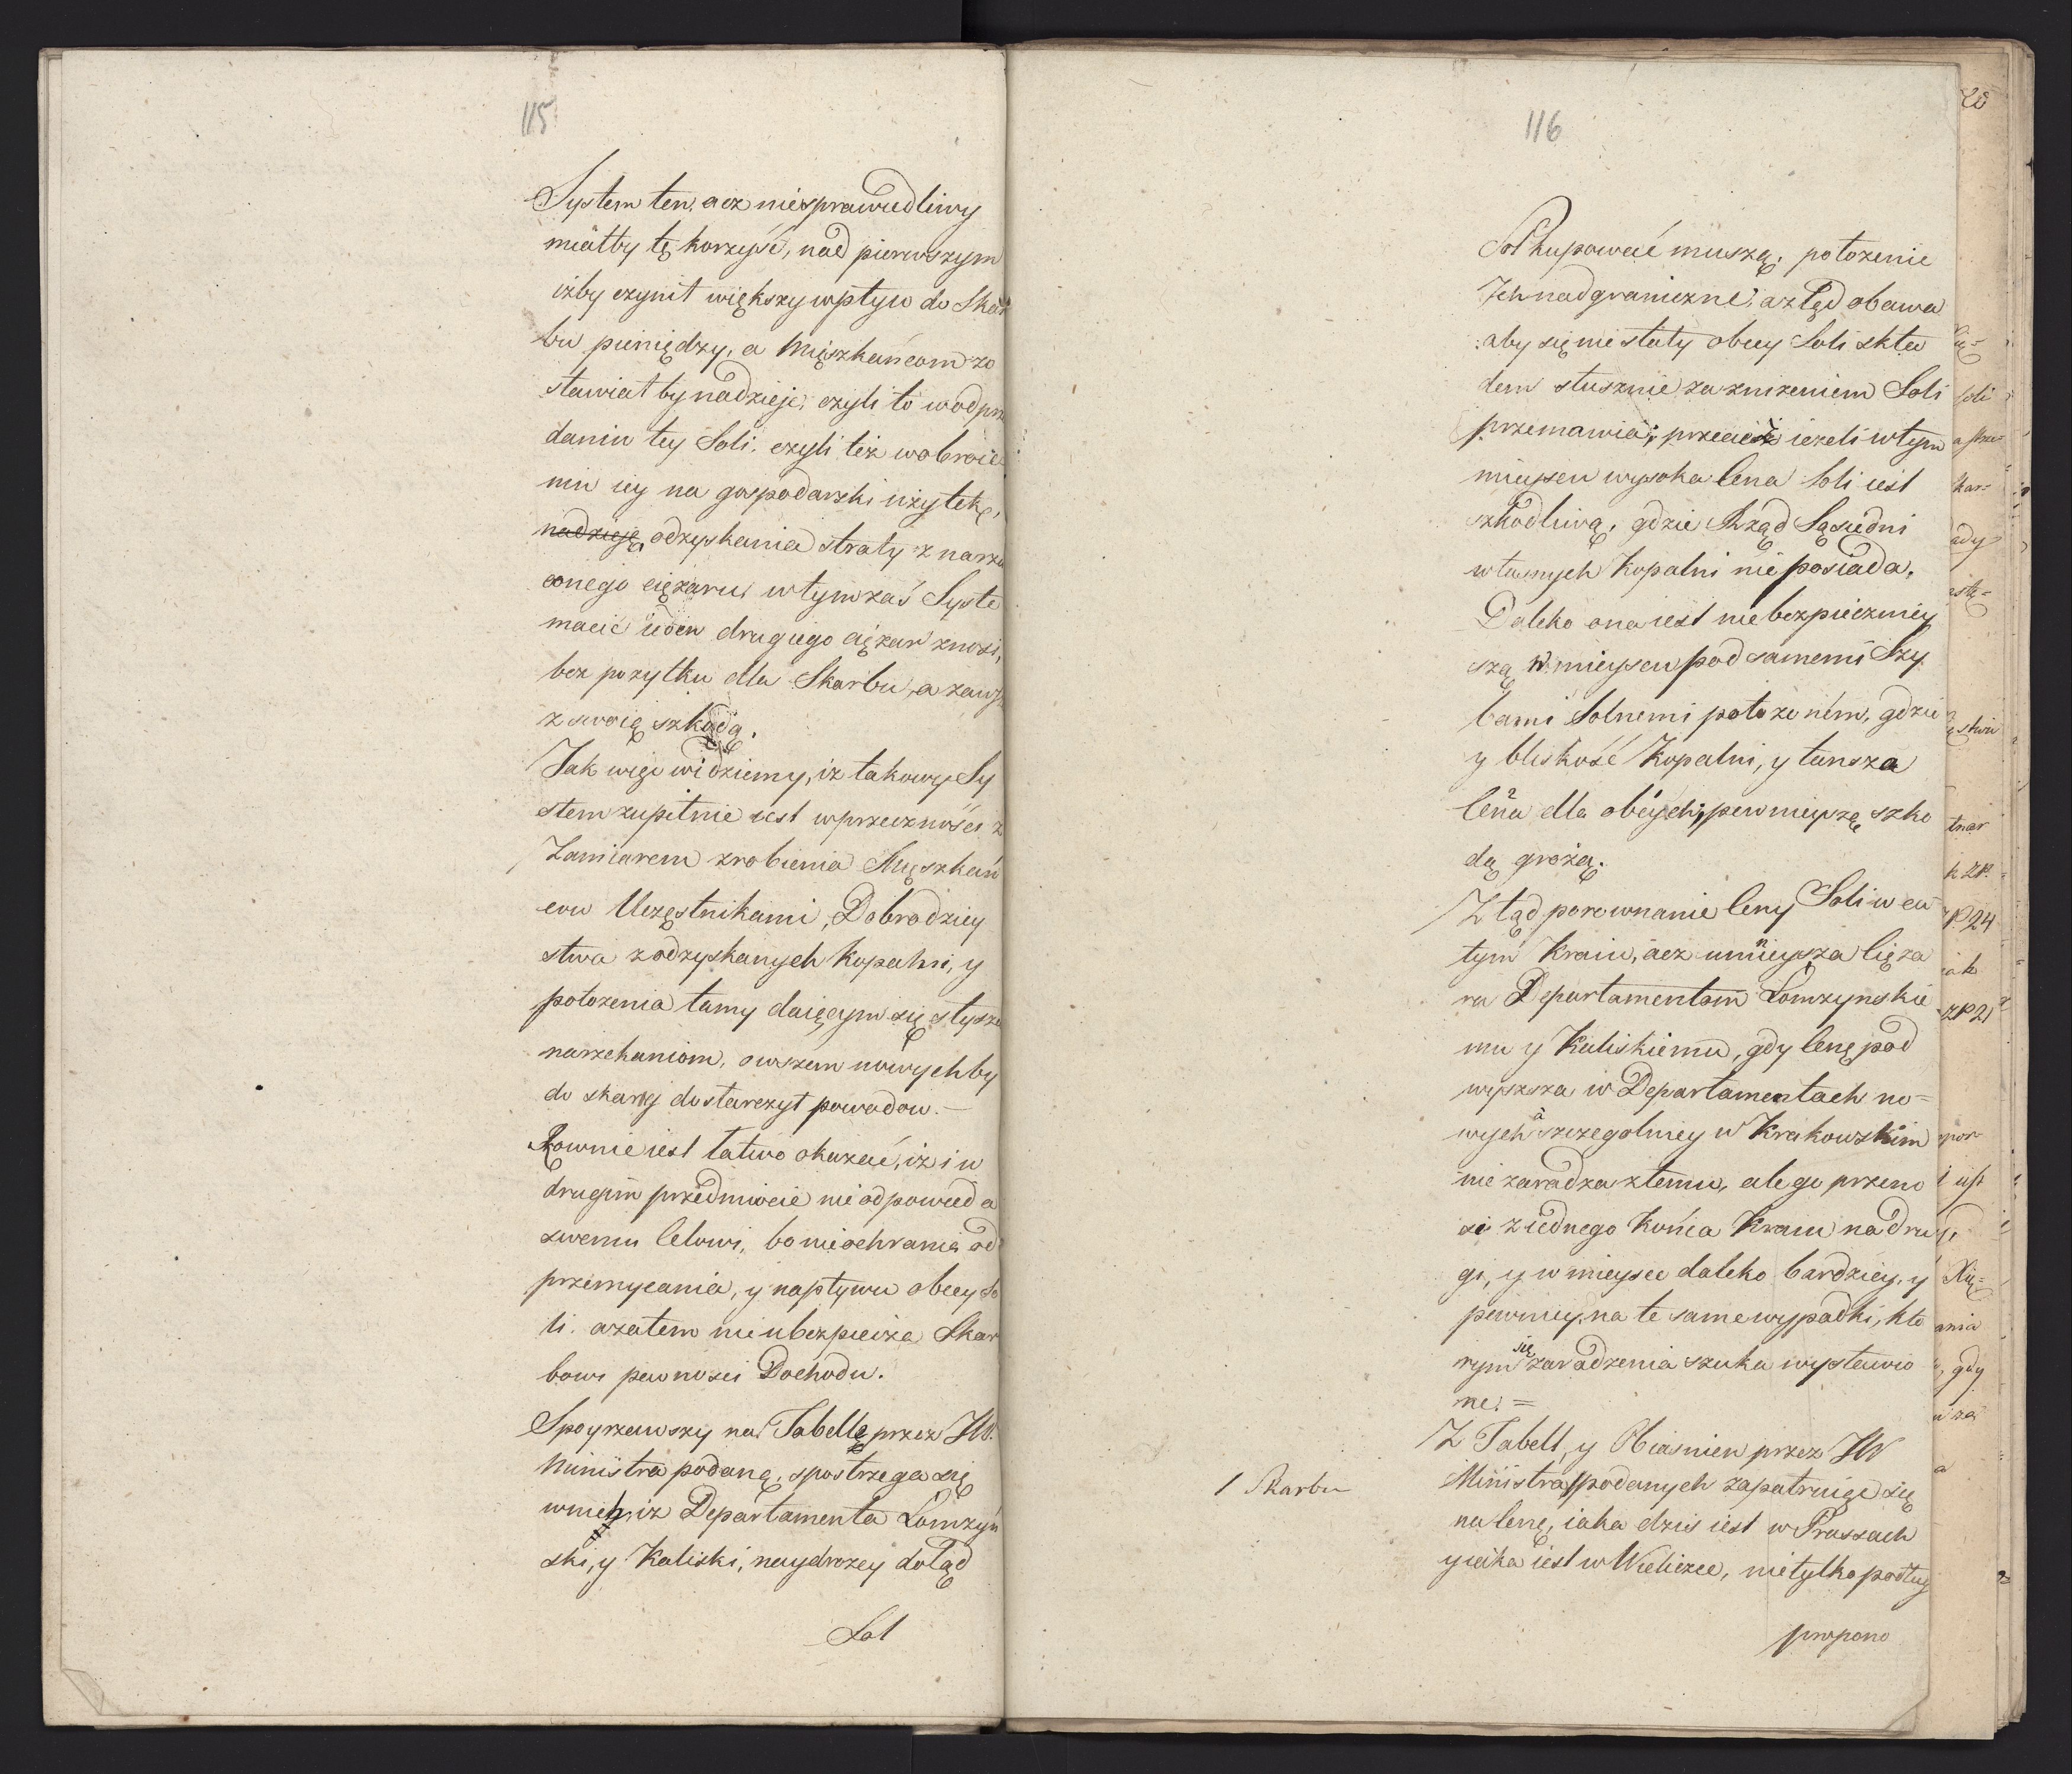 115
System ten, acz niesprawiedliwy
miałby tę korzyść, nad pierwszym
iżby czynił większy wpływ do Skar
bu pieniędzy, a Mięszkańcom zo
stawiał by nadzieję, czyli to w odprze
daniu tey Soli, czyli też w obróce
niu iey na gospodarski użytek,
nadzieję odzyskania straty z narzu
conego ciężaru, w tym zaś Syste
macie ieden drugiego ciężar znosi,
bez pożytku dla Skarbu, a zawsze
z swoią szkodą.
Jak więc widziemy, iż takowy Sy
stem zupełnie iest w przeczności z
Zamiarem zrobienia Mięszkań
cow Uczęstnikami, Dobrodziey
stwa z odzyskanych Kopalni, y
położenia tamy daiącym się słysze
narzekaniom, owszem nowych by
do skarg dostarczył powodow. —
Rownie iest łatwo okazać, iż i w
drugim przedmiocie nie odpowieda
swemu Celowi, bo nie ochrania od
przemycania, y napływu obcey So
li. a zatem nie ubezpiecza Skar
bowi pewności Dochodu.
Spoyrzawszy na Tabellę przez JW.
Ministra podaną, spostrzega się
w nich, iż Departamenta Łomżyń
ski, y Kaliski, naydrożey dotąd
Sol
116
Sol kupować muszą. położenie
Ich nadgraniczne, a ztąd obawa
aby się nie stały obcey Soli skła
dem słusznie za zniżeniem Soli
przemawia; przecież ieżeli w tym
mieyscu wysoka Cena Soli iest
szkodliwą, gdzie Rząd Sąsiedni
własnych Kopalni nie posiada,
Daleko ona iest niebezpieczniey
szą w mieyscu pod samemi Szy
bami Solnemi położoném, gdzie
y bliskość Kopalni, y tańsza
Cena dla obcych, pewnieyszą szko
dą grożą.
Ztąd porownanie Ceny Soli w ca
łym Kraiu, acz umnieysza Ciężа
ru Departamentom Łomżynskie
mu y Kaliskiemu, gdy Cenę pod
wyższa w Departamentach no=
wych a szczegolniey w Krakowskim
nie zaradza złemu, ale go przeno
si z iednego Końca Kraiu na dru
gi, y w mieysce daleko bardziey, y
pewniey, na te same wypadki, kto
rym się zaradzenia szuka wystawio
ne. =
Z Tabell, y Obiaśnien przez JW
/ Skarbu
Ministra / podanych zapatruiąc się
na Cenę, iaka dziś iest w Prussach
y iaka iest w Wieliczce, nie tylko podług
propono